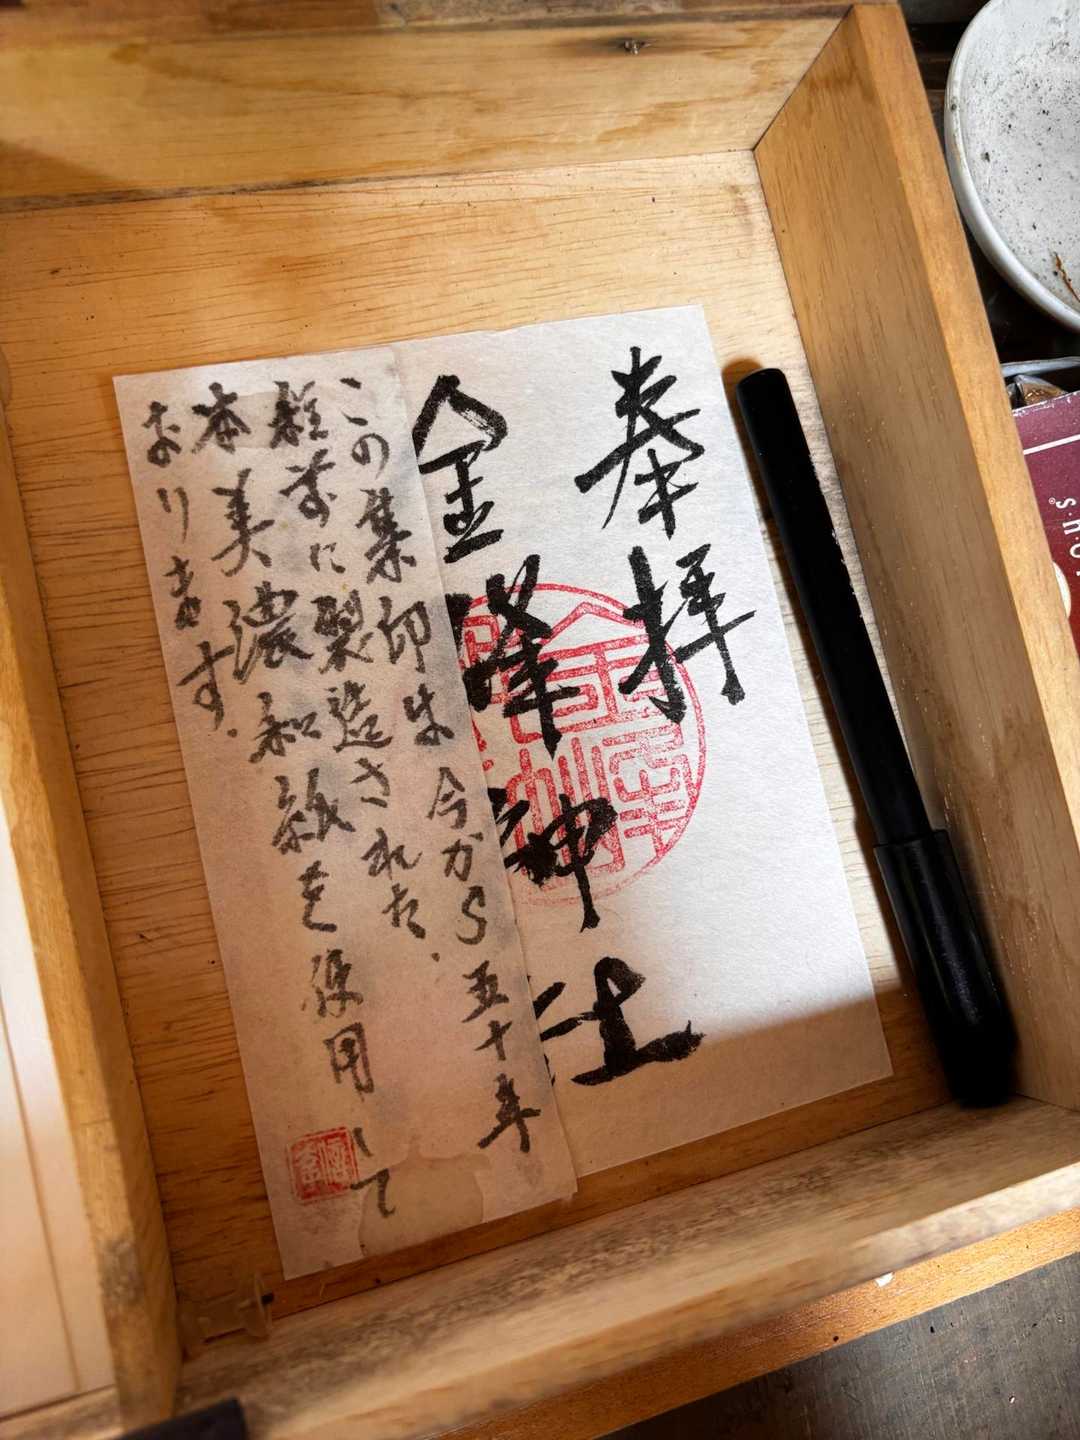 奉拝
金峰神社
この集印は今から五十年
程前に製造された
本美濃和紙を使用して
おります。